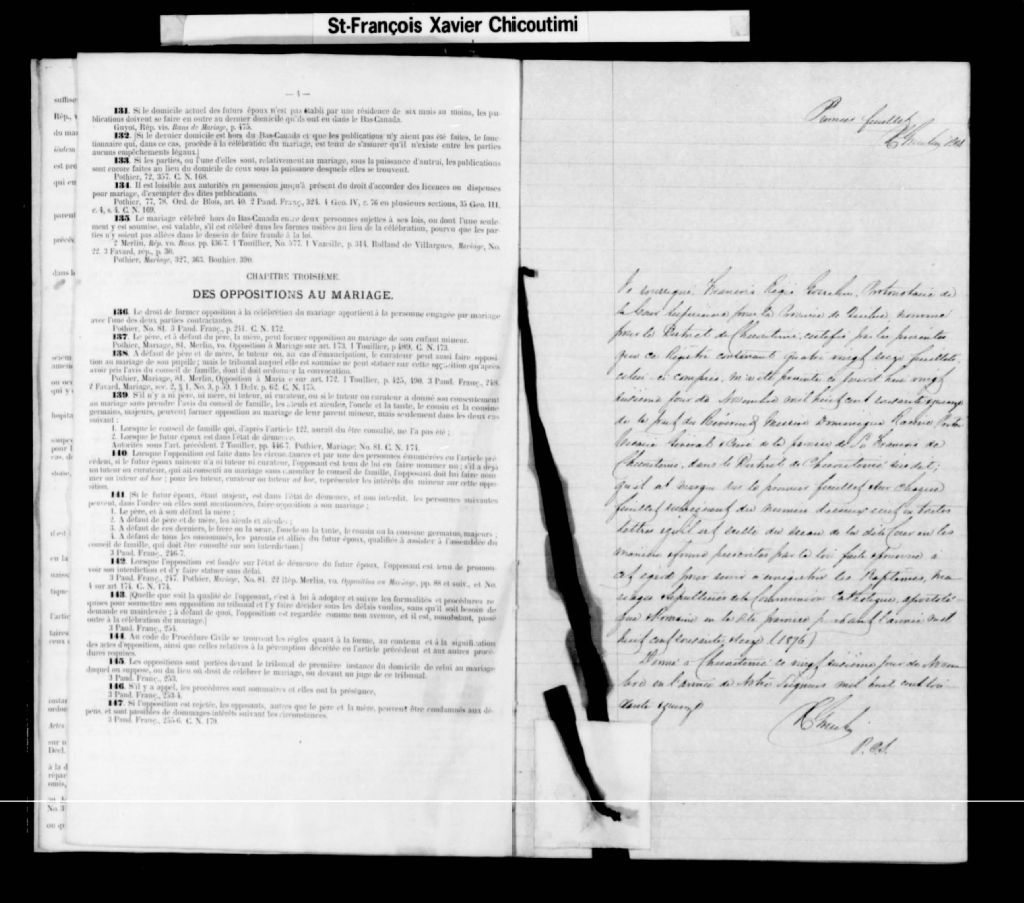 St-François Xavier Chicoutimi
— 4 —
131. Si le domicile actuel des futurs époux n'est pas établi par une résidence de six mois au moins, les pu-
blications doivent se faire en outre au dernier domicile qu'ils ont eu dans le Bas-Canada.
Guyot, Rép. vis. Bans de Mariage, p. 475.
132. [Si le dernier domicile est hors du Bas-Canada et que les publications n'y aient pas été faites, le fonc-
tionnaire qui, dans ce cas, procède à la célébration du mariage, est tenu de s'assurer qu'il n'existe entre les parties
aucuns empêchements légaux.]
133. Si les parties, ou l'une d'elles sont, relativement au mariage, sous la puissance d'autrui, les publications
sont encore faites au lieu du domicile de ceux sous la puissance desquels elles se trouvent.
Pothier, 72, 357. C. N. 168.
134. Il est loisible aux autorités en possession jusqu'à présent du droit d'accorder des licences ou dispenses
pour mariage, d'exempter des dites publications.
Pothier, 77, 78. Ord. de Blois, art. 40. 2 Pand. Franç., 324. 4 Geo. IV, c. 76 en plusieurs sections, 35 Geo. III,
c. 4, s. 4. C. N. 169.
135. Le mariage célébré hors du Bas-Canada entre deux personnes sujettes à ses lois, ou dont l'une seule-
ment y est soumise, est valable, s'il est célébré dans les formes usitées au lieu de la célébration, pourvu que les par-
ties n'y soient pas allées dans le dessein de faire fraude à la loi.
2 Merlin, Rép. vo. Bans, pp. 436-7. 1 Toullier, No. 577. 1 Vazeille, p. 314. Rolland de Villargues, Mariage, No.
22. 3 Favard, rép., p. 30.
Pothier, Mariage, 327, 363. Bouhier, 390.
CHAPITRE TROISIÈME.
DES OPPOSITIONS AU MARIAGE.
136. Le droit de former opposition à la célébration du mariage appartient à la personne engagée par mariage
avec l'une des deux parties contractantes.
Pothier, No. 81. 3 Pand. Franç., p. 241. C. N. 172.
137. Le père, et à défaut du père, la mère, peut former opposition au mariage de son enfant mineur.
Pothier, Mariage, 81. Merlin, vo. Opposition à Mariage sur art. 173. 1 Toullier, p. 489. C. N. 173.
138. A défaut de père et de mère, le tuteur ou, au cas d'émancipation, le curateur peut aussi faire opposi-
tion au mariage de son pupille; mais le tribunal auquel elle est soumise ne peut statuer sur cette opposition qu'après
avoir pris l'avis du conseil de famille, dont il doit ordonner la convocation.
Pothier, Mariage, 81. Merlin, Opposition à Mariage sur art. 172. 1 Toullier, p. 425, 490. 3 Pand. Franç., 248.
2 Favard, Mariage, sec. 2, § 1, No. 3, p. 59. 1 Delv. p. 62. C. N. 175.
139. S'il n'y a ni père, ni mère, ni tuteur, ni curateur, ou si le tuteur ou curateur a donné son consentement
au mariage sans prendre l'avis du conseil de famille, les aïeuls et aïeules, l'oncle et la tante, le cousin et la cousine
germains, majeurs, peuvent former opposition au mariage de leur parent mineur, mais seulement dans les deux cas
suivants:
1. Lorsque le conseil de famille qui, d'après l'article 122, aurait du être consulté, ne l'a pas été;
2. Lorsque le futur époux est dans l'état de démence.
Autorités sous l'art. précédent. 2 Toullier, pp. 446-7. Pothier, Mariage, No. 81. C. N. 174.
140. Lorsque l'opposition est faite dans les circonstances et par une des personnes énumérées en l'article pré-
cédent, si le futur époux mineur n'a ni tuteur ni curateur, l'opposant est tenu de lui en faire nommer un; s'il a déjà
un tuteur ou curateur, qui ait consenti au mariage sans consulter le conseil de famille, l'opposant doit lui faire nom-
mer un tuteur ad hoc; pour les tuteur, curateur ou tuteur ad hoc, représenter les intérêts du mineur sur cette oppo-
sition.
141. [Si le futur époux, étant majeur, est dans l'état de démence, et non interdit, les personnes suivantes
peuvent, dans l'ordre où elles sont mentionnées, faire opposition à son mariage;
1. Le père, et à son défaut la mère;
2. A défaut de père et de mère, les aïeuls et aïeules;
3. A défaut de ces derniers, le frère ou la sœur, l'oncle ou la tante, le cousin ou la cousine germains, majeurs;
4. A défaut de tous les susnommés, les parents et alliés du futur époux, qualifiés à assister à l'assemblée du
conseil de famille, qui doit être consulté sur son interdiction.]
3 Pand. Franç., 246-7.
142. Lorsque l'opposition est fondée sur l'état de démence du futur époux, l'opposant est tenu de promou-
voir son interdiction et d'y faire statuer sans délai.
3 Pand. Franç., 247. Pothier, Mariage, No. 81. 22 Rép. Merlin, vo. Opposition au Mariage, pp. 88 et suiv., et No.
4 sur art. 174. C. N. 174.
143. [Quelle que soit la qualité de l'opposant, c'est à lui à adopter et suivre les formalités et procédures re-
quises pour soumettre son opposition au tribunal et l'y faire décider sous les délais voulus, sans qu'il soit besoin de
demande en mainlevée; à défaut de quoi, l'opposition est regardée comme non avenue, et il est, nonobstant, passé
outre à la célébration du mariage.]
3 Pand. Franç., 254.
144. Au code de Procédure Civile se trouvent les règles quant à la forme, au contenu et à la signification
des actes d'opposition, ainsi que celles relatives à la péremption décrétée en l'article précédent et aux autres procé-
dures requises.
145. Les oppositions sont portées devant le tribunal de première instance du domicile de celui au mariage
duquel on s'oppose, ou du lieu où droit de célébrer le mariage, ou devant un juge de ce tribunal.
3 Pand. Franç., 253.
146. S'il y a appel, les procédures sont sommaires et elles ont la préséance.
3 Pand. Franç., 253-4.
147. Si l'opposition est rejetée, les opposants, autres que le père et la mère, peuvent être condamnés aux dé-
pens, et sont passibles de dommages-intérêts suivant les circonstances.
3 Pand. Franç., 255-6. C. N. 179.
Premier feuillet
Je soussigné, Francois Régis Gosselin, Protonotaire de
la Cour Supérieure pour la Province de Québec, nommé
pour le District de Chicoutimi, certifie par les présentes
que ce Registre contenant quatre vingt seize feuillets,
celui-ci compris, m'a été présenté ce jourd'hui vingt
sixième jour de Novembre mil huit cent soixante quinze
de la part du Révérend Messire Dominique Racine
Vicaire Général & Curé de la paroisse de St Francois de
Chicoutimi, dans le District de Chicoutimi susdit;
qu'il est marqué sur le premier feuillet & sur chaque
feuillet subséquent du numéro d'iceux écrit en toutes
lettres & qu'il est scellé du sceau de la dite Cour en la
manière & forme prescrites par la loi faite & pourvue à
cet égard pour servir à enregistrer les Baptêmes, Ma-
riages & Sépultures de la Communion Catholique, apostoli-
que & Romaine en la dite paroisse pendant l'année mil
huit cent soixante seize (1876)
Donné à Chicoutimi ce vingt sixième jour de Novem-
bre en l'année de Notre Seigneur mil huit cent soi-
xante quinze
P. C. S.